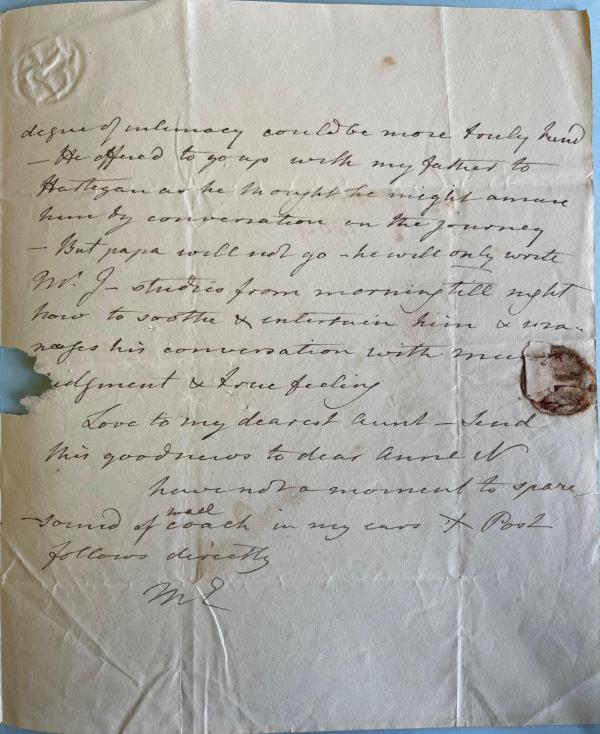 degree of intimacy could be more truly kind
- He offered to go up with my father to
Hartigan as he thought he might amuse
him by conversation on the journey
- But papa will not go - he will only write
Mr. J - studies from morning till night
how to soothe & entertain him & ma-
nages his conversation with much
judgment & true feeling
Love to my dearest Aunt - Send
this good news to dear Anne N
have not a moment to spare -
- sound of mail coach in my ears & Post
follows directly
ME